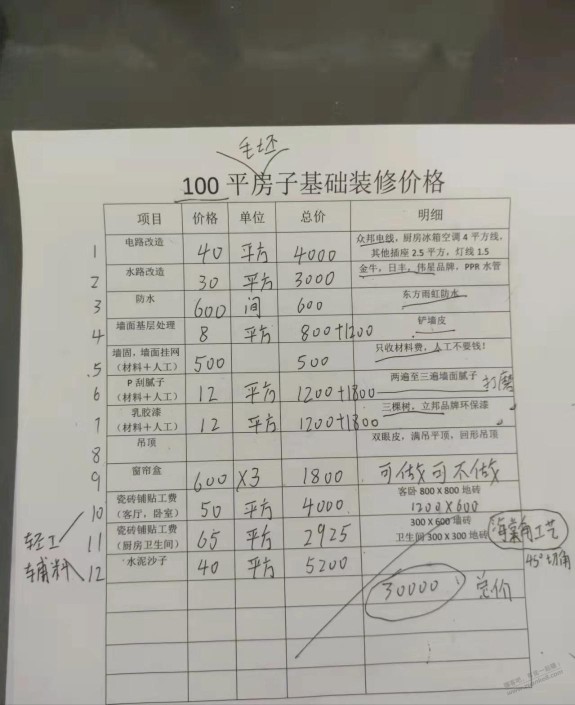 毛坯
100 平房子基础装修价格
项目 价格 单位 总价 明细
1 电路改造 40 平方 4000 众邦电线,厨房冰箱空调 4 平方线,
其他插座 2.5 平方,灯线 1.5
2 水路改造 30 平方 3000 金牛,日丰,伟星品牌,PPR 水管
3 防水 600 间 600 东方雨虹防水
4 墙面基层处理 8 平方 800+1200 铲墙皮
5 墙固,墙面挂网
(材料+人工) 500 500 只收材料费,人工不要钱!
6 P 刮腻子
(材料+人工) 12 平方 1200+1800 两遍至三遍墙面腻子 打磨
7 乳胶漆
(材料+人工) 12 平方 1200+1800 三棵树,立邦品牌环保漆
8 吊顶 双眼皮,满吊平顶,回形吊顶
9 窗帘盒 600 X3 1800 可做可不做
10 瓷砖铺贴工费
(客厅、卧室) 50 平方 4000 客卧 800 X 800 地砖
1200X600
轻工 11 瓷砖铺贴工费
(厨房卫生间) 65 平方 2925 300 X 600 墙砖
卫生间 300 X 300 地砖 海棠角工艺
辅料 12 水泥沙子 40 平方 5200 45°切角
30000 总价